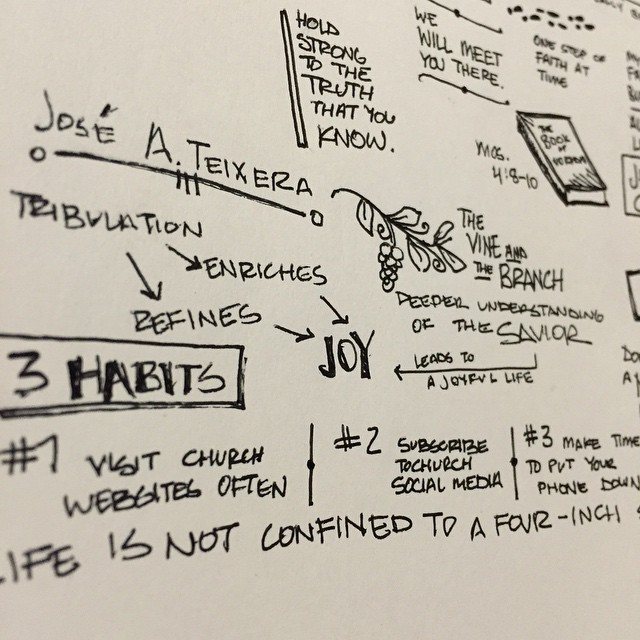 HOLD
STRONG
TO THE
TRUTH
THAT YOU
KNOW.
WE
WILL MEET
YOU THERE.
ONE STEP OF
FAITH AT
TIME
MOS.
4:8-10
THE
BOOK
OF
MORMON
JOSÉ A. TEIXERA
TRIBULATION
ENRICHES
REFINES
JOY
THE
VINE AND
THE BRANCH
DEEPER UNDERSTANDING
OF THE SAVIOR
LEADS TO
A JOYFUL LIFE
3 HABITS
#1 VISIT CHURCH
WEBSITES OFTEN
#2 SUBSCRIBE
TO CHURCH
SOCIAL MEDIA
#3 MAKE TIME
TO PUT YOUR
PHONE DOWN
LIFE IS NOT CONFINED TO A FOUR-INCH